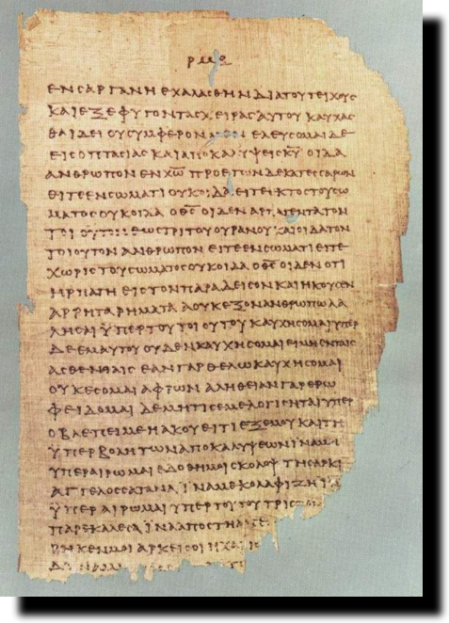 ενσαργανηεχαλασθηνδιατουτειχους
καιεξεφυγοντασχειραςαυτουκαυχας
θαιδειουσυμφερονελευσομαιδε
εισοπτασιασκαιαποκαλυψεισκ̅υ̅οιδα
ανθρωπονενχ̅ω̅προετωνδεκατεσσαρων
ειτεενσωματιουκοιδαειτεεκτοστουσω
ματοσουκοιδαοθ̅ς̅οιδεναρπαγεντατον
τοιουτονεωστριτουουρανουκαιοιδατον
τοιουτονανθρωπονειτεενσωματιειτε
χωριστουσωματοσουκοιδαοθ̅ς̅οιδενοτι
ηρπαγηειστονπαραδεισονκαιηκουσεν
αρρηταρηματααουκεξονανθρωπωλα
λησαιϋπερτουτοιουτουκαυχησομαιϋπερ
δεεμαυτουουδενκαυχησομαιειμηενταις
ασθενειαισεανγαρθελωκαυχησομαι
ουκεσομαιαφρωναληθειανγαρερω
φειδομαιδεμητισεμελογισηταιϋπερ
οβλεπειμεηακουειτιεξεμουκαιτη
ϋπερβολητωναποκαλυψεωνϊναμη
υπεραιρωμαιεδοθημοισκολοψτησαρκι
αγγελοσσαταναϊναμεκολαφιζη
ϋπεραιρωμαιϋπερτουτουτρις
παρεκαλεσαϊνααποστη